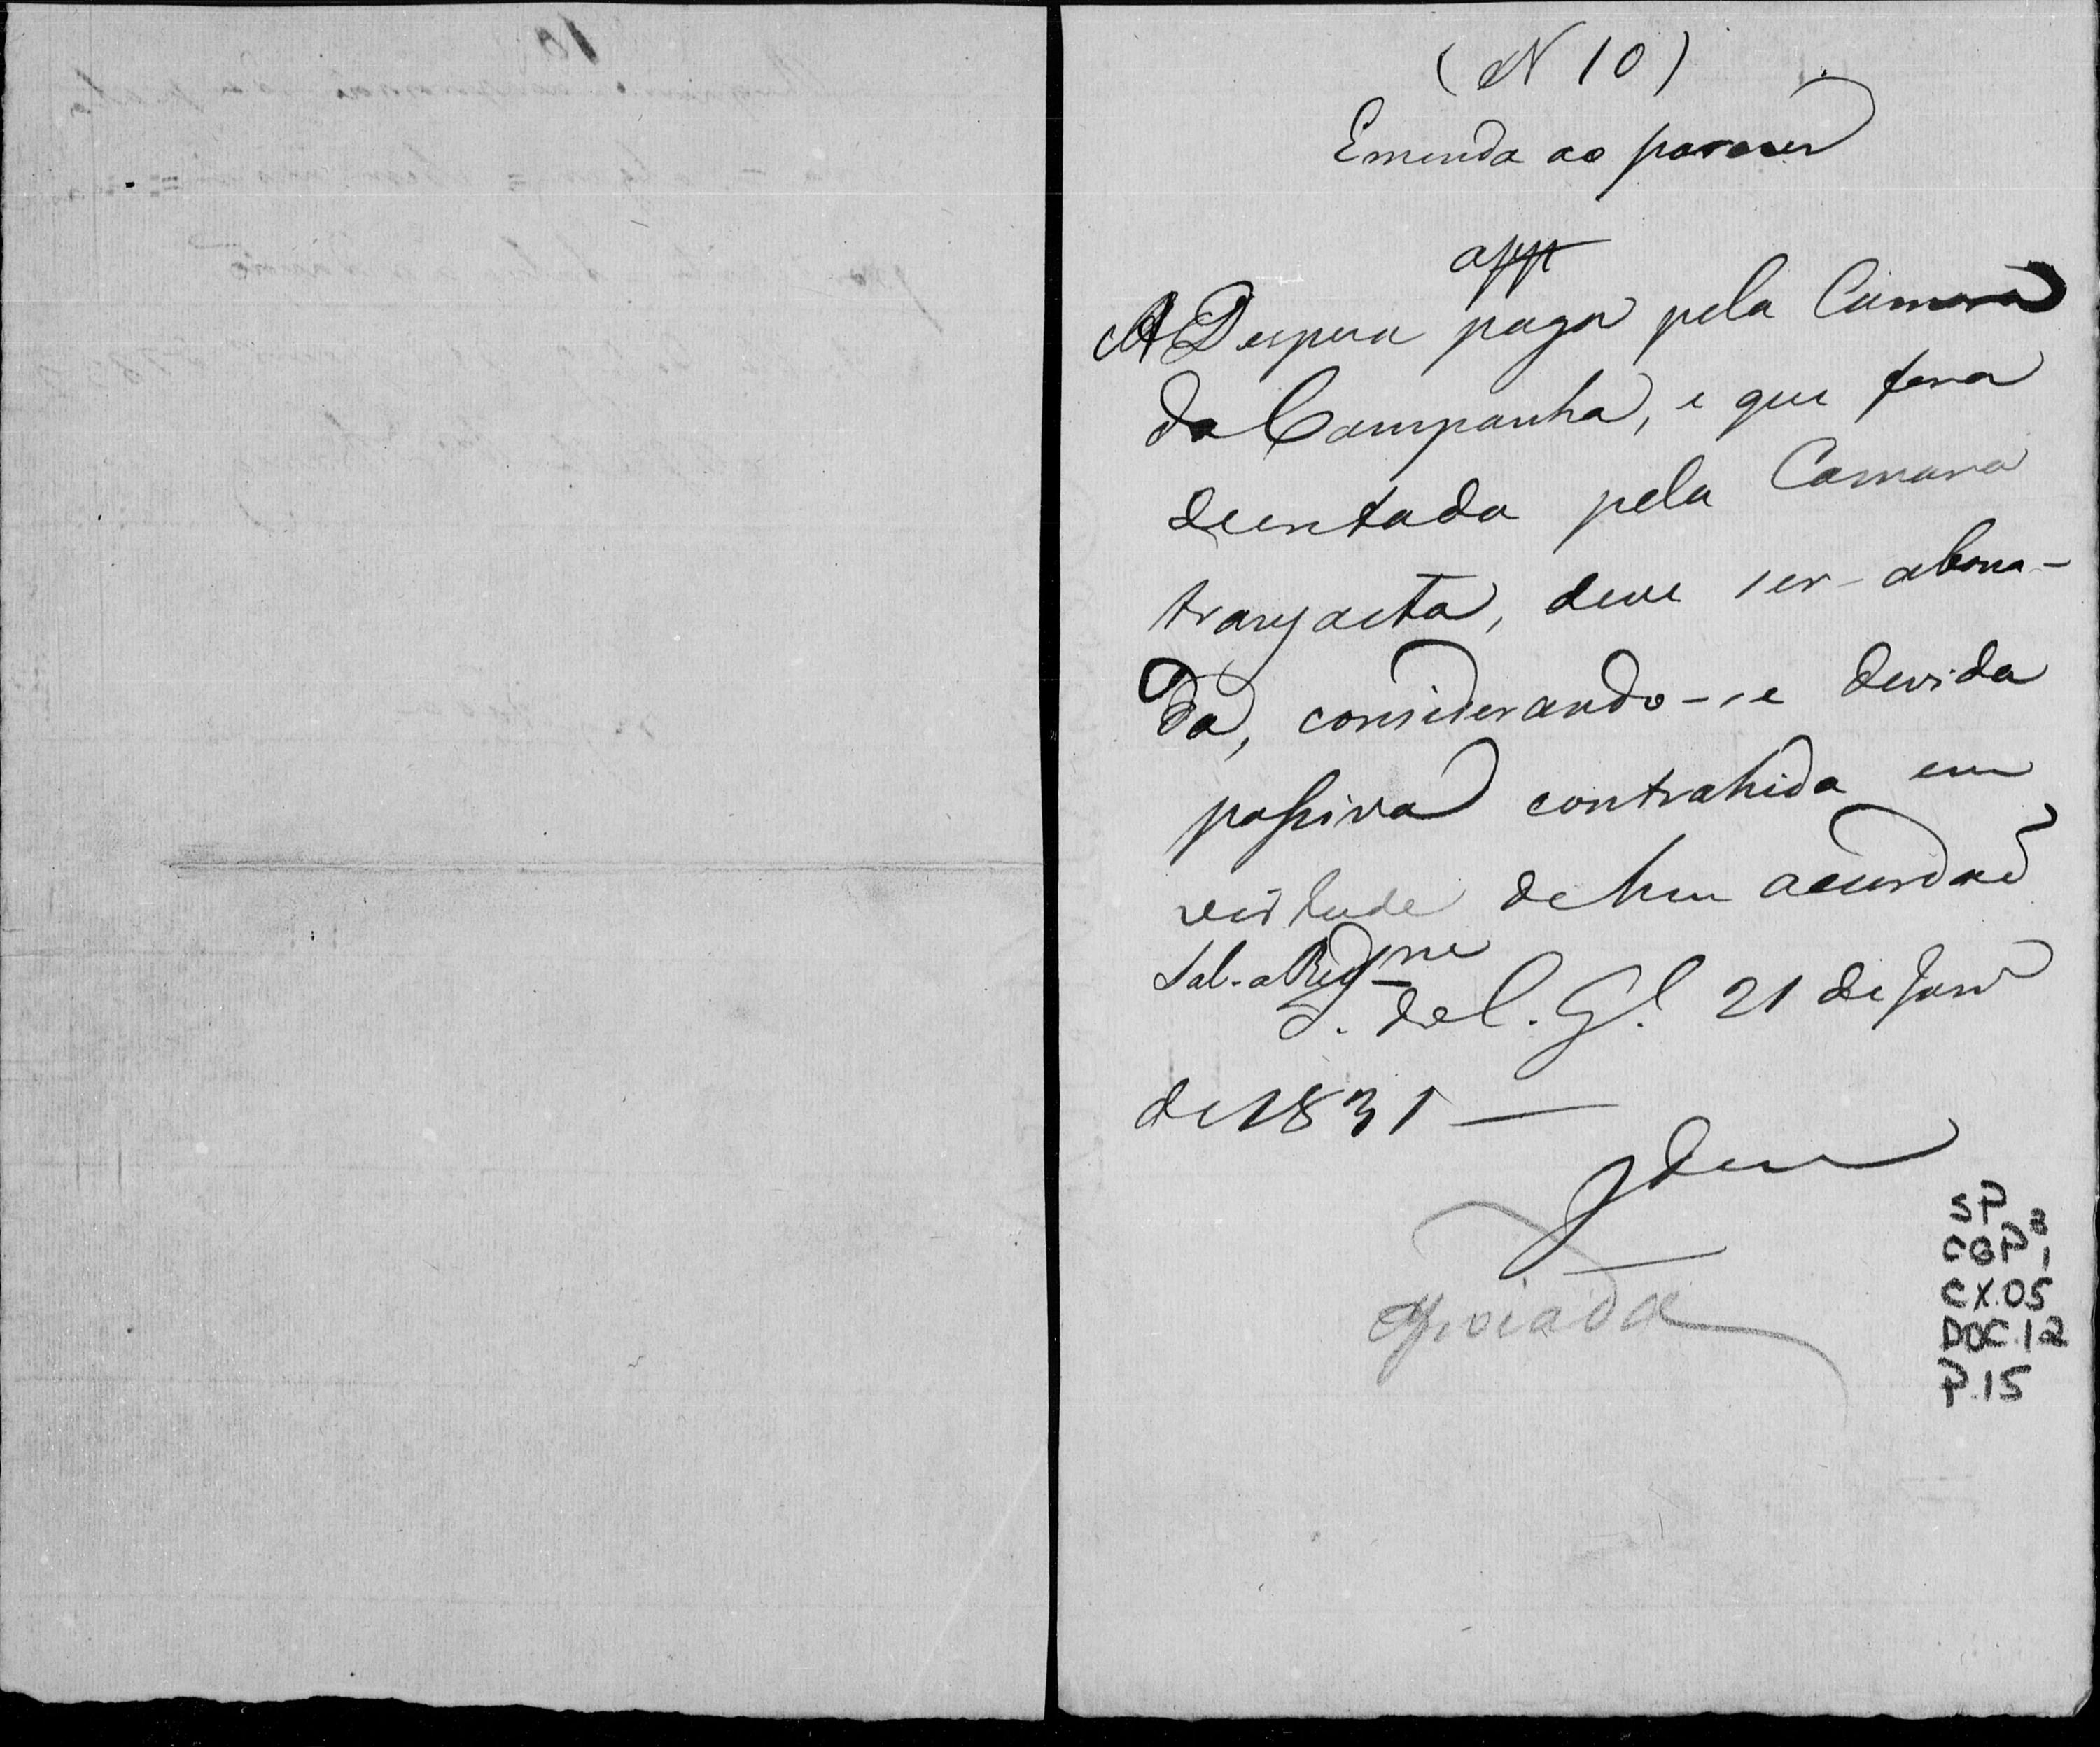 (N 10)
Emenda ao parecer
A Despeza paga pela Camara
da Campanha, e que fora
decretada pela Camara
transacta, deve ser abona-
da, considerando-se devida
passiva contrahida em
virtude de hum acordaõ
Sal. a Red.
S. do C. G.l 21 de Janr.º
de 1831 —
Idem
Apoiada
SP
CGP 3
1
CX.05
DOC.12
P.15